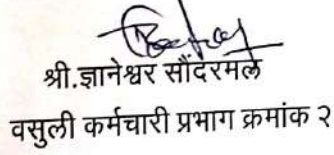 श्री.ज्ञानेश्वर सौंदरमले
वसुली कर्मचारी प्रभाग क्रमांक २